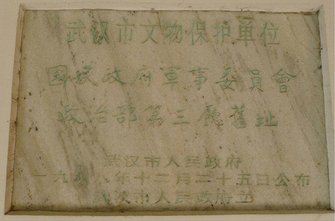 武汉市文物保护单位
国民政府军事委员會
政治部第三廳舊址
武汉市人民政府
一九 年十二月二十五日公布
武汉市人民政府立